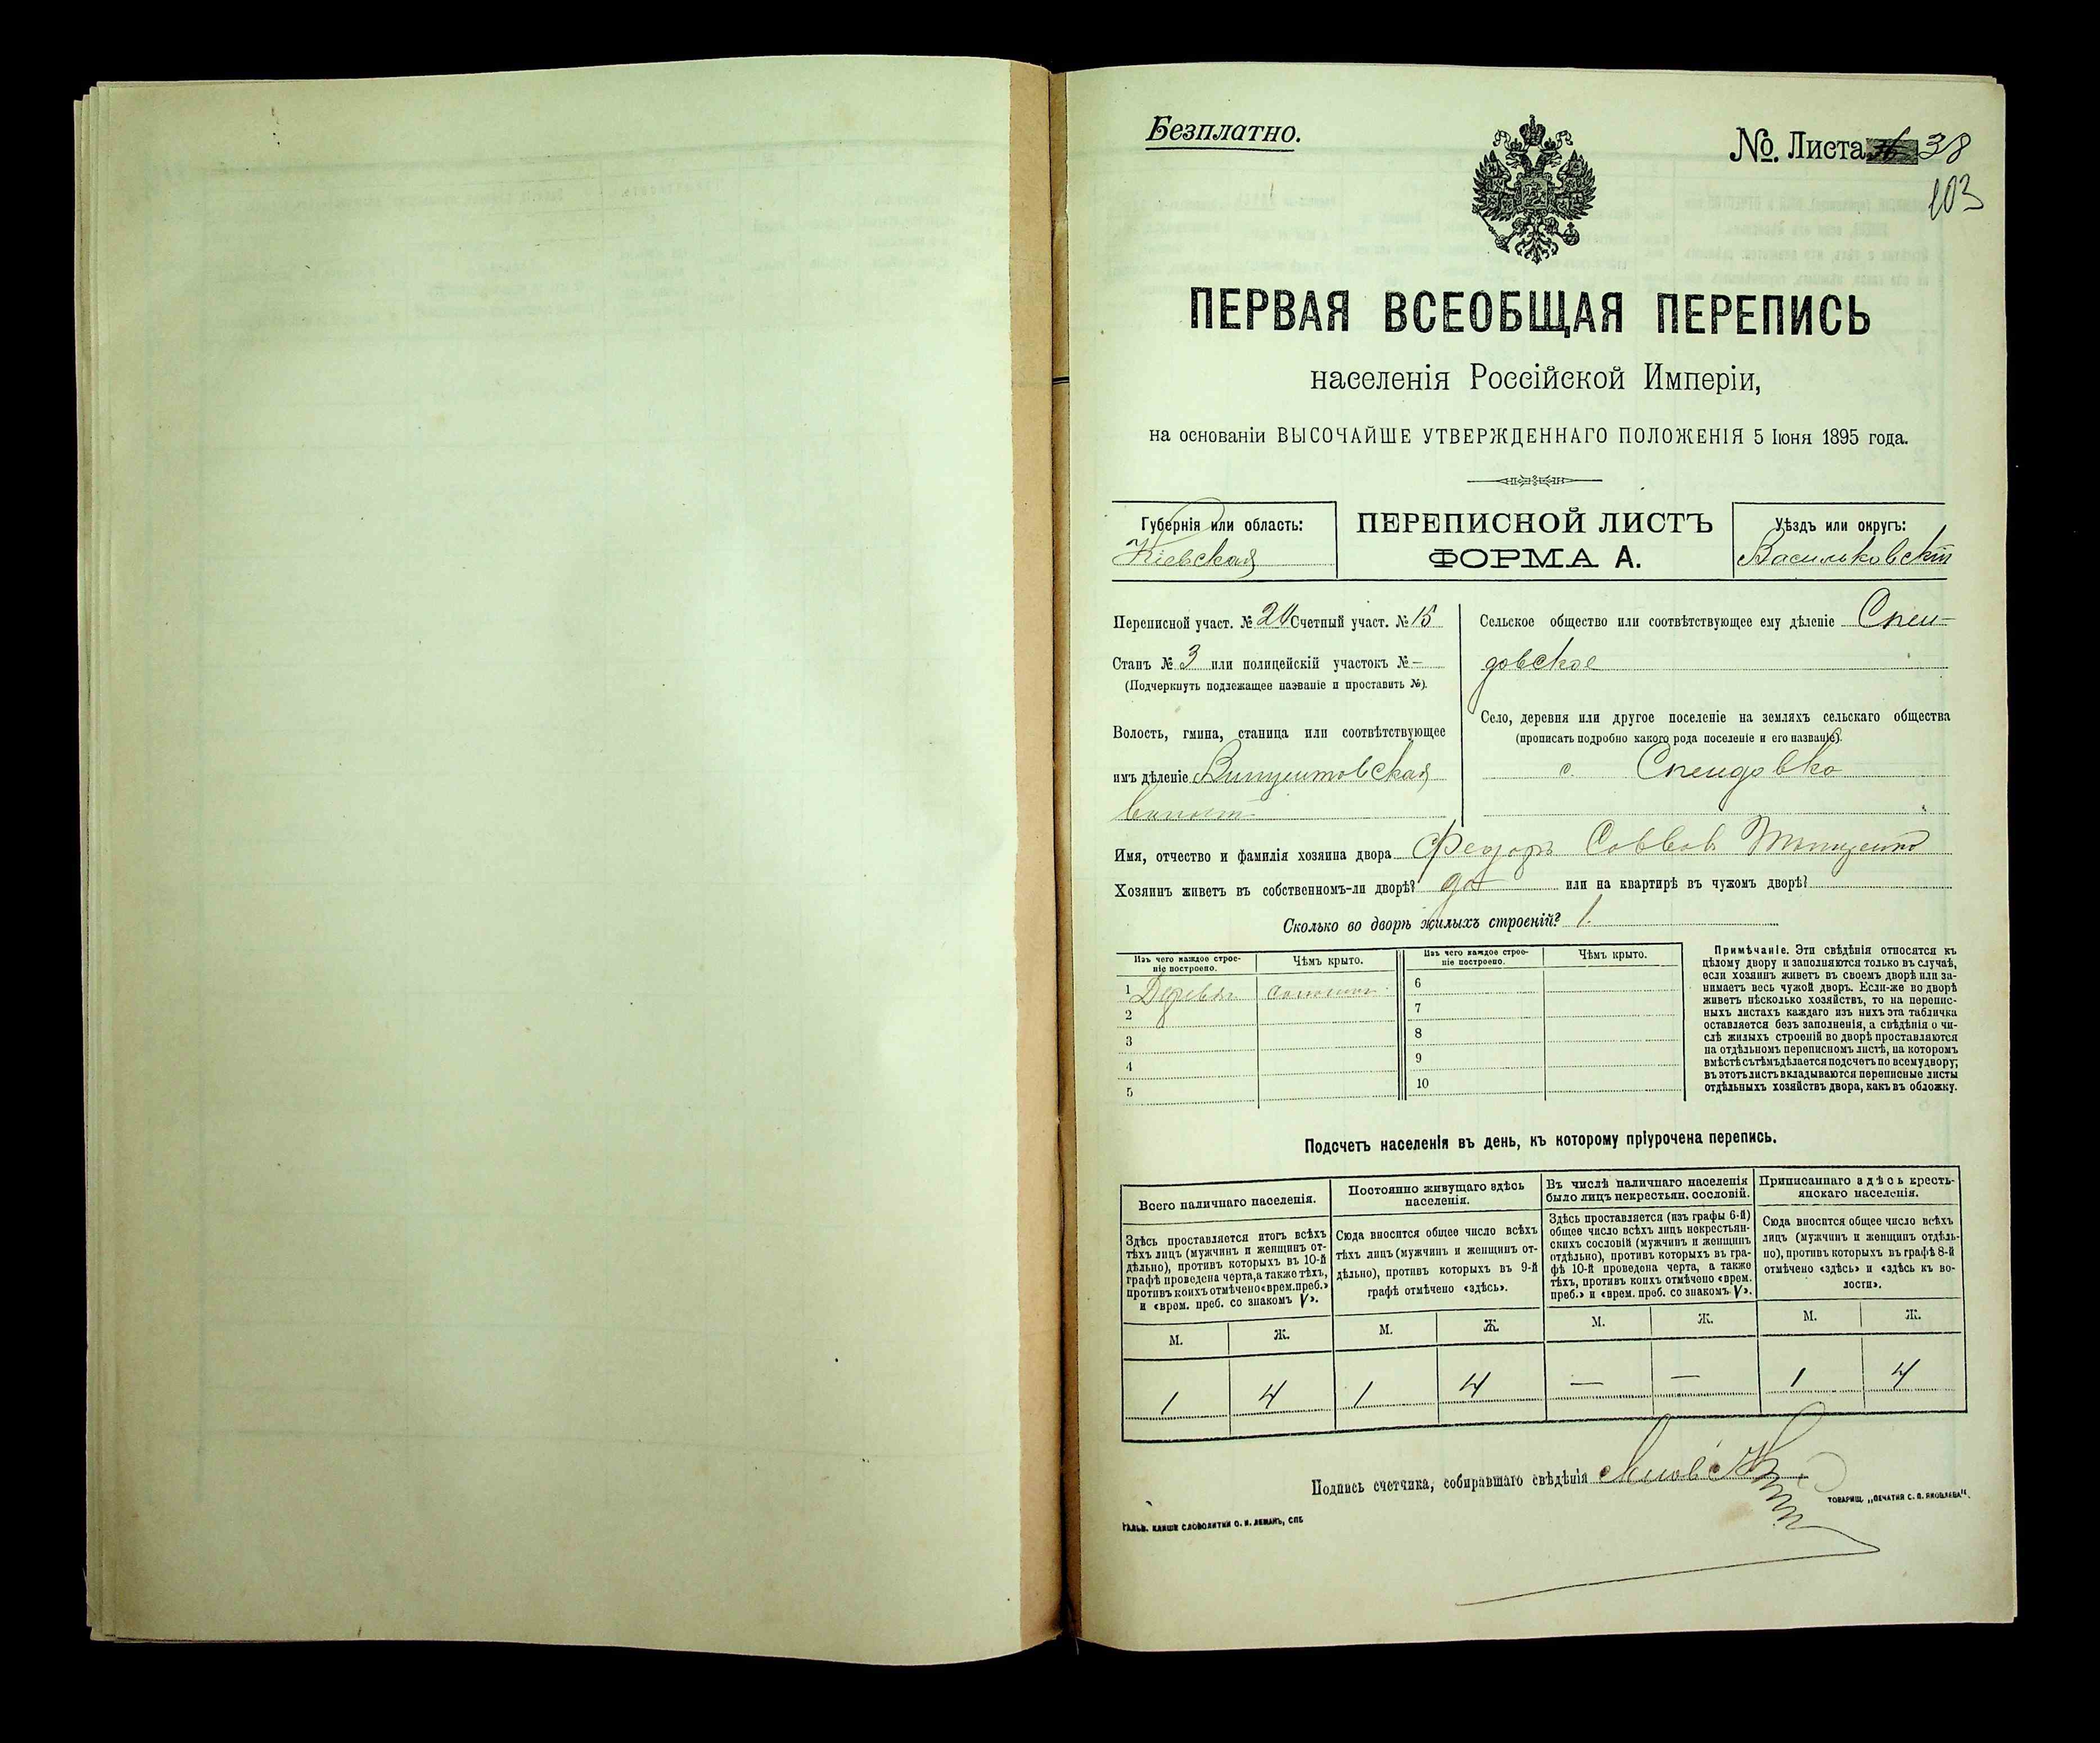 Безплатно.
№. Листа 38
103
ПЕРВАЯ ВСЕОБЩАЯ ПЕРЕПИСЬ
населенія Россійской Имперіи,
на основаніи ВЫСОЧАЙШЕ УТВЕРЖДЕННАГО ПОЛОЖЕНІЯ 5 Іюня 1895 года.
Губернія или область:
Кіевская
ПЕРЕПИСНОЙ ЛИСТЪ
ФОРМА А.
Уѣздъ или округъ:
Васильковскій
Переписной участ. № 20 Счетный участ. № 15
Станъ № 3 или полицейскій участокъ № —
(Подчеркнуть подлежащее названіе и проставить №).
Волость, гмина, станица или соотвѣтствующее
имъ дѣленіе Винцентовская
волость
Сельское общество или соотвѣтствующее ему дѣленіе Спен-
довское
Село, деревня или другое поселеніе на земляхъ сельскаго общества
(прописать подробно какого рода поселеніе и его названіе).
с. Спендовка
Имя, отчество и фамилія хозяина двора Федоръ Саввов
Хозяинъ живетъ въ собственномъ-ли дворѣ? да или на квартирѣ въ чужомъ дворѣ?
Сколько во дворѣ жилыхъ строеній? 1.
Изъ чего каждое строе-
ніе построено.
Чѣмъ крыто.
1 Дерева солома
2
3
4
5
Изъ чего каждое строе-
ніе построено.
Чѣмъ крыто.
6
7
8
9
10
Примѣчаніе. Эти свѣдѣнія относятся къ
цѣлому двору и заполняются только въ случаѣ,
если хозяинъ живетъ въ своемъ дворѣ или за-
нимаетъ весь чужой дворъ. Если-же во дворѣ
живетъ нѣсколько хозяйствъ, то на перепис-
ныхъ листахъ каждаго изъ нихъ эта табличка
оставляется безъ заполненія, а свѣдѣнія о чи-
слѣ жилыхъ строеній во дворѣ проставляются
на отдѣльномъ переписномъ листѣ, на которомъ
вмѣстѣ съ тѣмъ дѣлается подсчетъ по всему двору;
въ этотъ листъ вкладываются переписные листы
отдѣльныхъ хозяйствъ двора, какъ въ обложку.
Подсчетъ населенія въ день, къ которому пріурочена перепись.
Всего наличнаго населенія.
Здѣсь проставляется итогъ всѣхъ
тѣхъ лицъ (мужчинъ и женщинъ от-
дѣльно), противъ которыхъ въ 10-й
графѣ проведена черта, а также тѣхъ,
противъ коихъ отмѣчено «врем. преб.»
и «врем. преб. со знакомъ V».
М. Ж.
1 4
Постоянно живущаго здѣсь
населенія.
Сюда вносится общее число всѣхъ
тѣхъ лицъ (мужчинъ и женщинъ от-
дѣльно), противъ которыхъ въ 9-й
графѣ отмѣчено «здѣсь».
М. Ж.
1 4
Въ числѣ наличнаго населенія
было лицъ некрестьян. сословій.
Здѣсь проставляется (изъ графы 6-й)
общее число всѣхъ лицъ некрестьян-
скихъ сословій (мужчинъ и женщинъ
отдѣльно), противъ которыхъ въ гра-
фѣ 10-й проведена черта, а также
тѣхъ, противъ коихъ отмѣчено «врем.
преб.» и «врем. преб. со знакомъ V».
М. Ж.
— —
Приписаннаго здѣсь кресть-
янскаго населенія.
Сюда вносится общее число всѣхъ
лицъ (мужчинъ и женщинъ отдѣль-
но), противъ которыхъ въ графѣ 8-й
отмѣчено «здѣсь» и «здѣсь къ во-
лости».
М. Ж.
1 4
Подпись счетчика, собиравшаго свѣдѣнія
ГАЛЬВ. КЛИШЕ СЛОВОЛИТНИ О. И. ЛЕМАНЪ, СПБ
ТОВАРИЩ. „ПЕЧАТНЯ С. П. ЯКОВЛЕВА“.